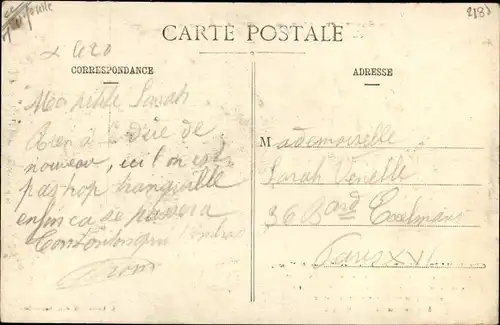 2183
CARTE POSTALE
CORRESPONDANCE
ADRESSE
Ma petite Sarah
Rien à te dire de
nouveau, ici l'on est
pas trop tranquille
enfin ca se passera
Ton
Mademoiselle
Sarah Venelle
36 Bard Exelmans
Paris XVI